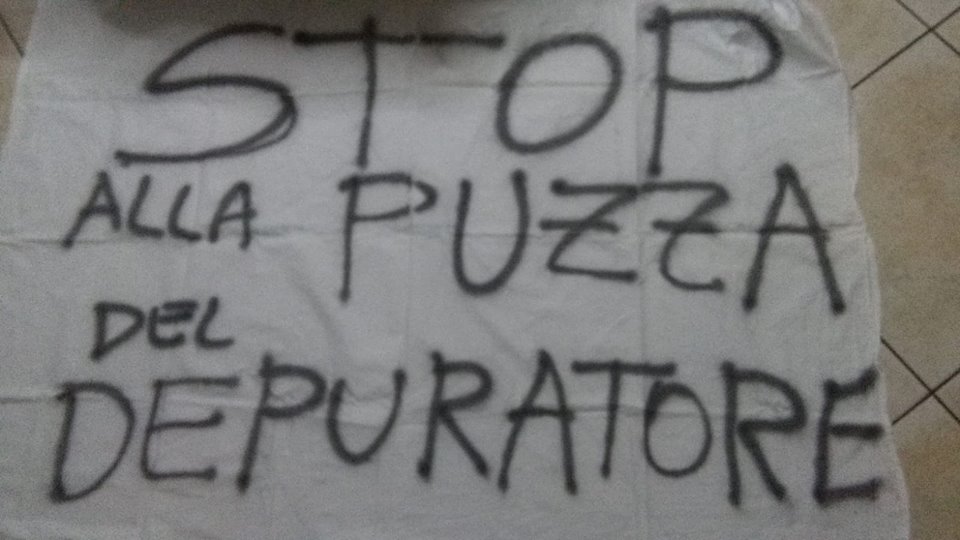 STOP
ALLA PUZZA
DEL
DEPURATORE